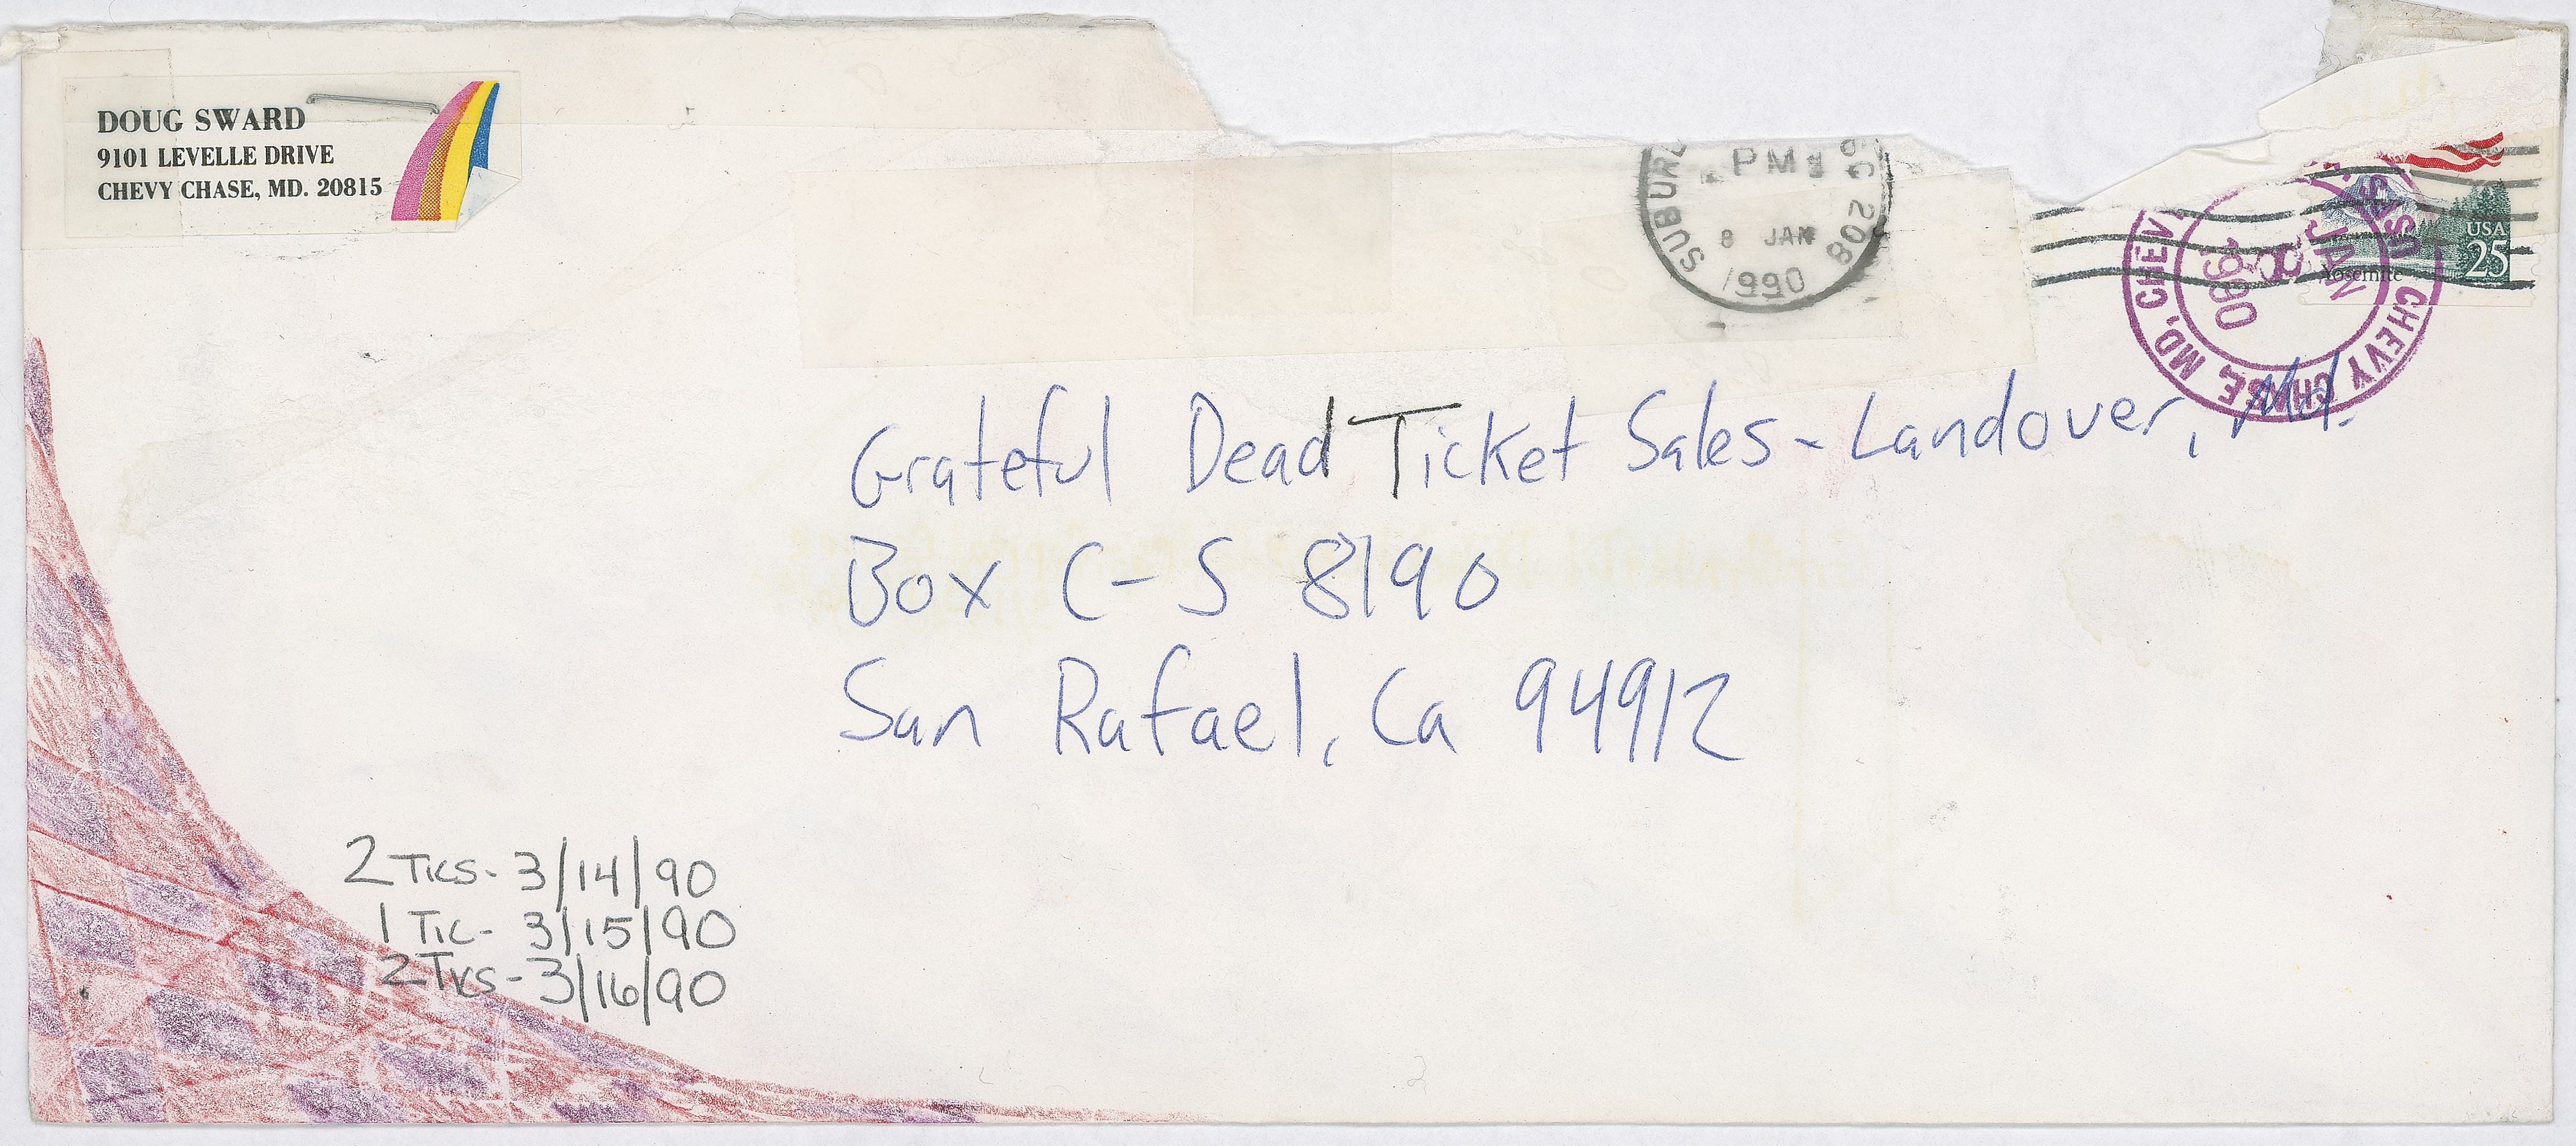 DOUG SWARD
9101 LEVELLE DRIVE
CHEVY CHASE, MD. 20815
PM
8 JAN
1990
208
USA
25
Yosemite
CHEVY CHASE, MD.
JAN
8
1990
Grateful Dead Ticket Sales - Landover, Md.
Box C-S 8190
San Rafael, Ca 94912
2 TKS - 3/14/90
1 TIC - 3/15/90
2 TKS - 3/16/90